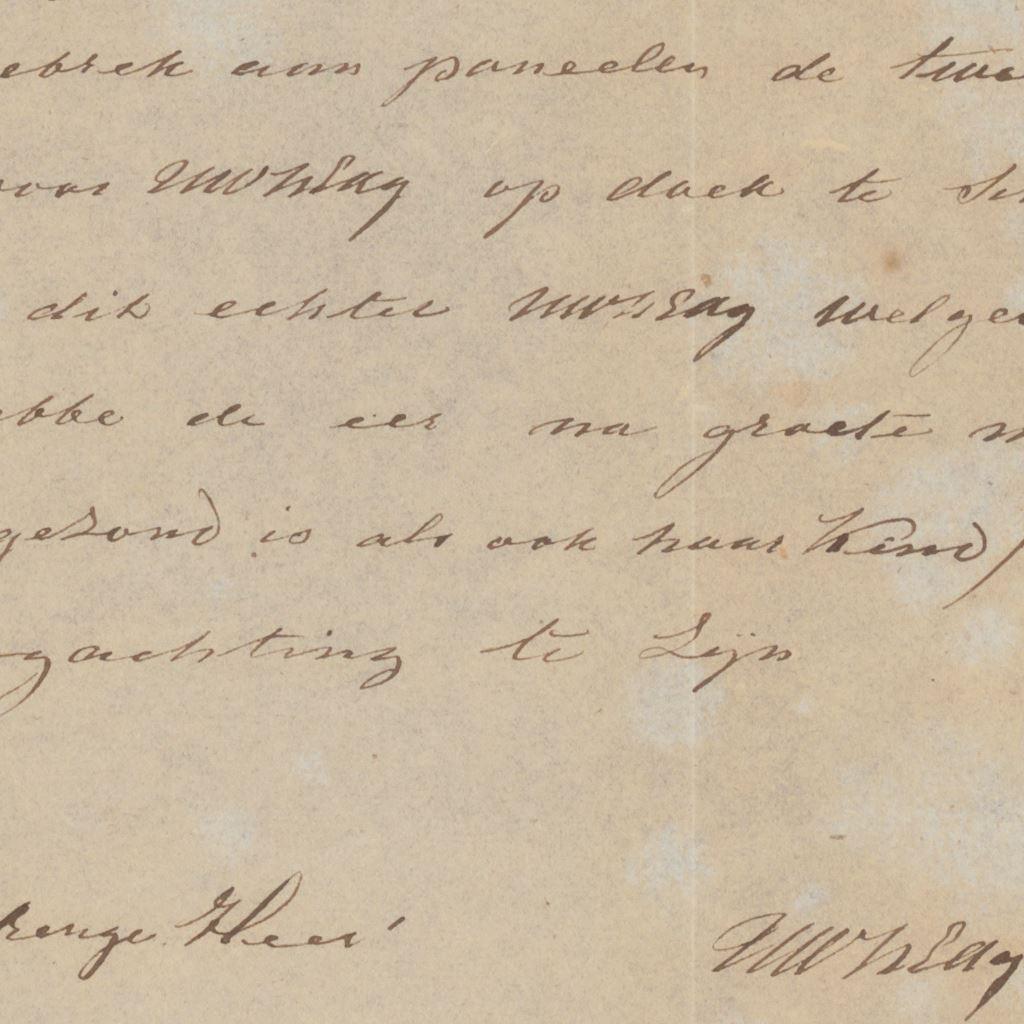 ebrek aan paneelen de twee
voor UWHEdg op doek te sch
dit echter UWHEdg welgev
ebbe de eer na groete m
gezond is als ook haar Kind)
gachting te Zijn
renge Heer
UWHEdg